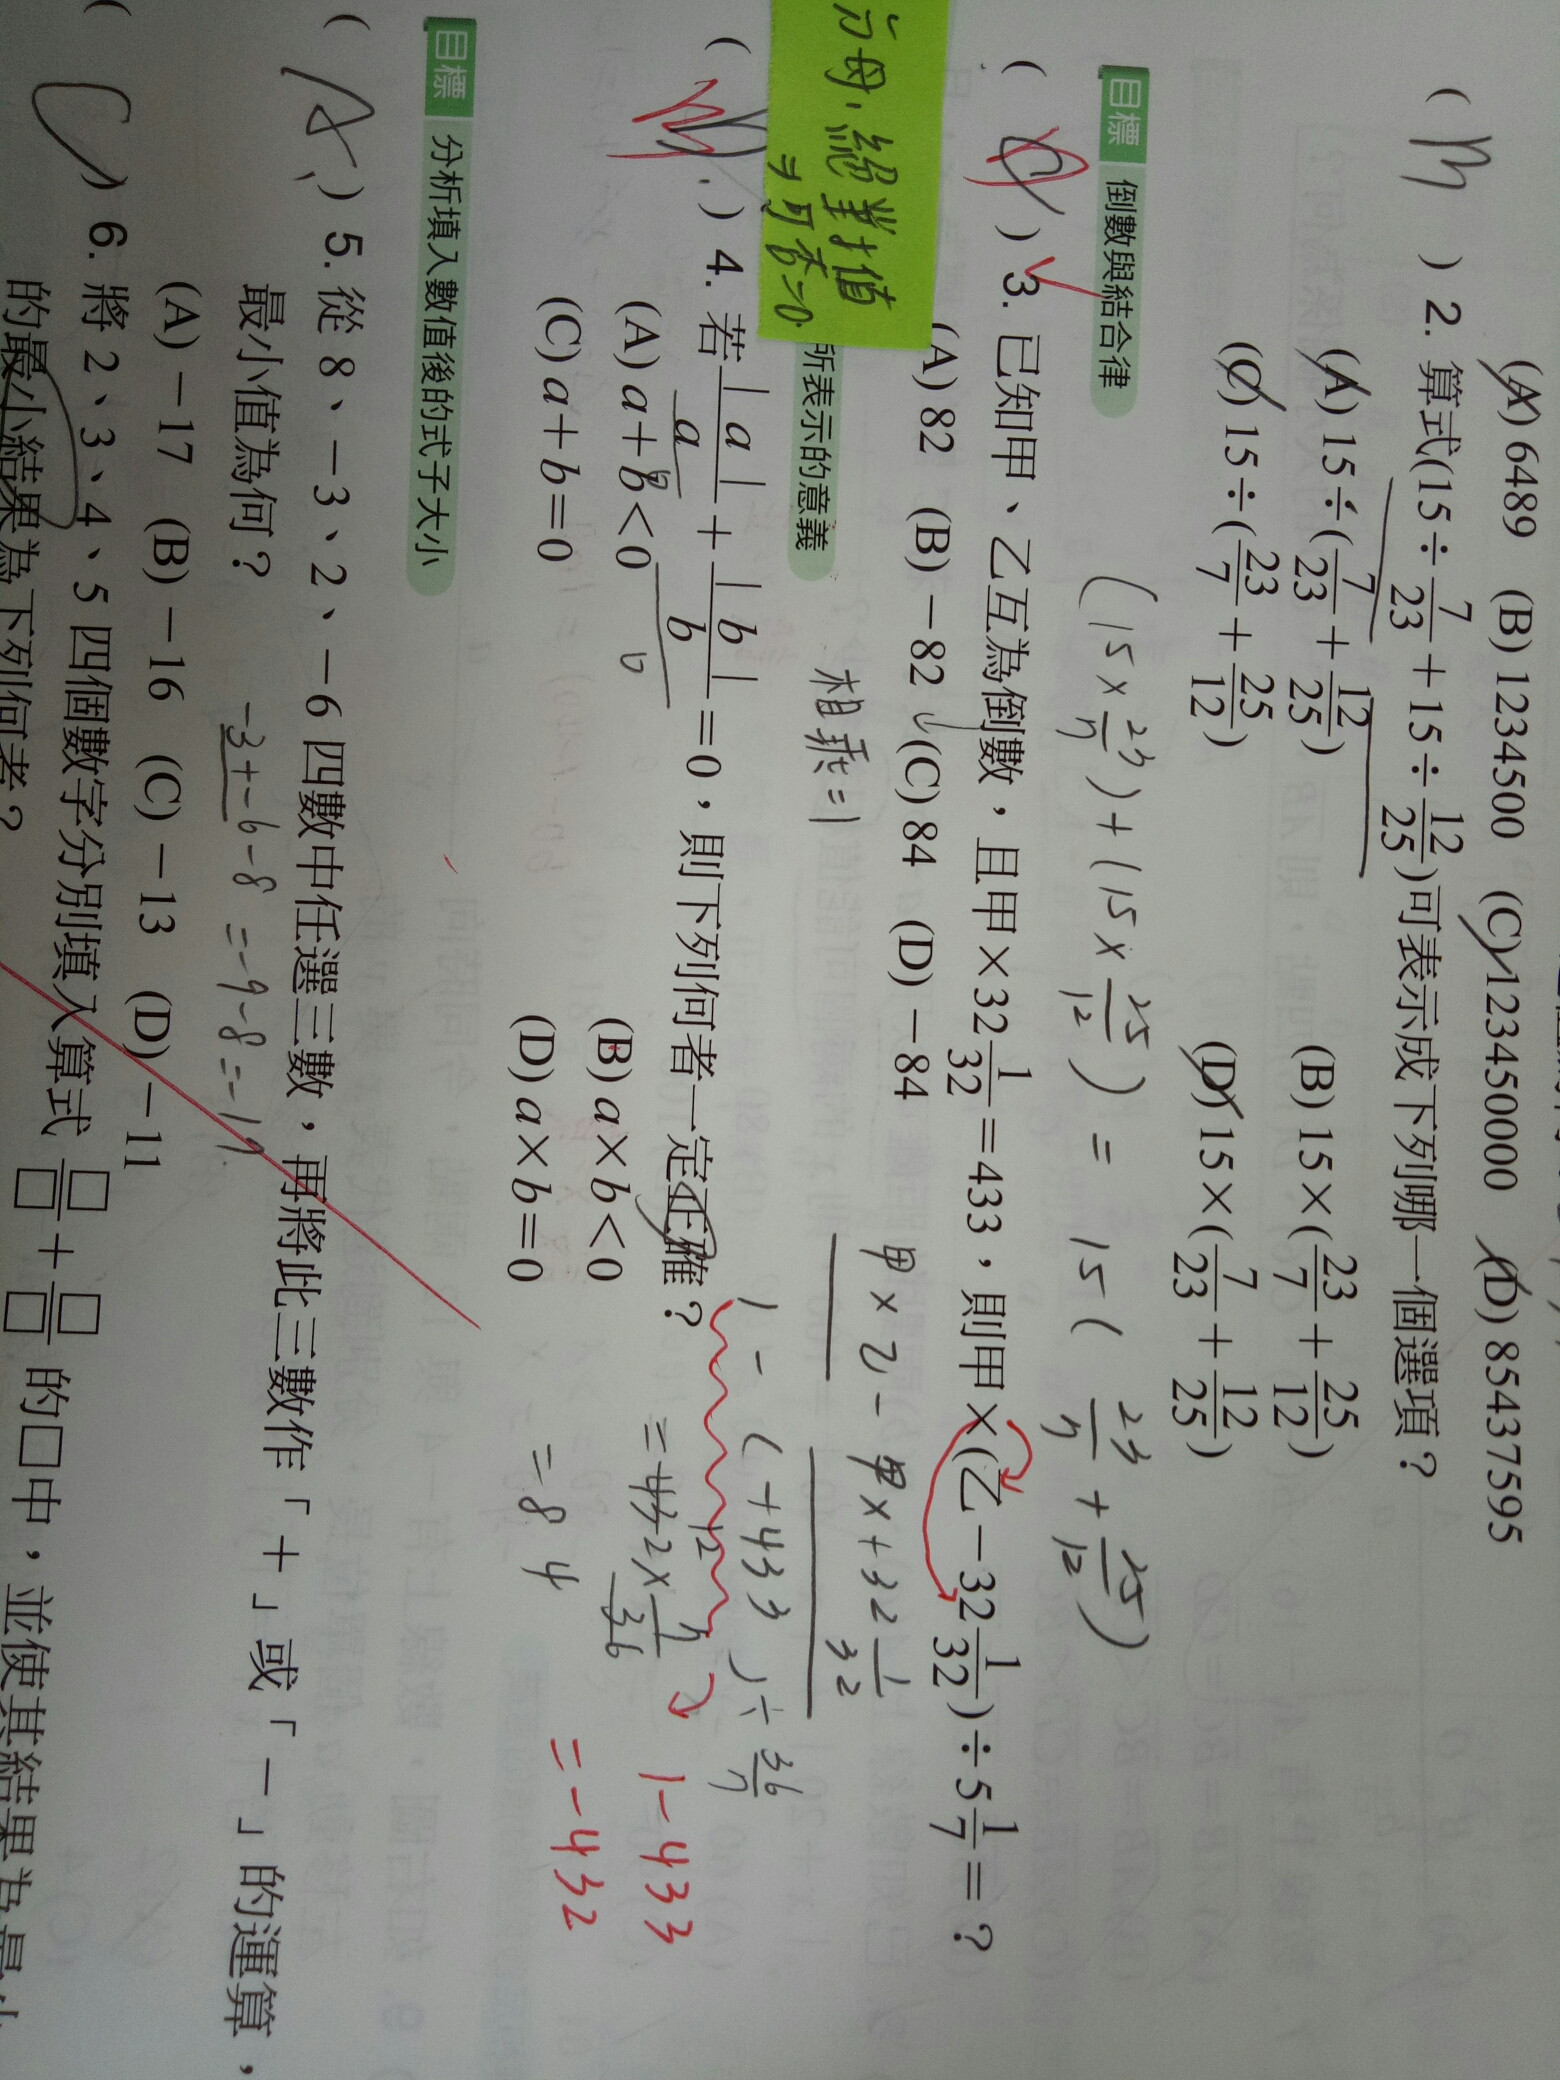 (A) 6489 (B) 1234500 (C) 123450000 (D) 85437595
( ) 2. 算式(15÷7/23+15÷12/25)可表示成下列哪一個選項？
(A) 15÷(7/23+12/25) (B) 15×(23/7+25/12)
(C) 15÷(23/7+25/12) (D) 15×(7/23+12/25)
(15×23/7)+(15×25/12) = 15(23/7+25/12)
目標 倒數與結合律
( ) 3. 已知甲、乙互為倒數，且甲×32 1/32=433，則甲×(乙-32 1/32)÷5 1/7=？
(A) 82 (B) -82 (C) 84 (D) -84
相乘=1
甲×乙-甲×+32 1/32
1-(+433)÷36/7
=432×7/36
=84
1-433
=-432
分母，絕對值
⇒可否=0
所表示的意義
( ) 4. 若|a|/a+|b|/b=0，則下列何者一定正確？
(A) a+b<0 (B) a×b<0
(C) a+b=0 (D) a×b=0
目標 分析填入數值後的式子大小
(A) 5. 從 8、-3、2、-6 四數中任選三數，再將此三數作「+」或「-」的運算，
最小值為何？
-3+-6-8=-9-8=-17
(A) -17 (B) -16 (C) -13 (D) -11
(C) 6. 將 2、3、4、5 四個數字分別填入算式 □/□+□/□ 的□中，並使其結果為最小
的最小結果為下列何者？